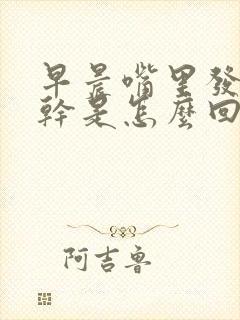 早晨嘴里發
幹是怎麼回
阿吉魯